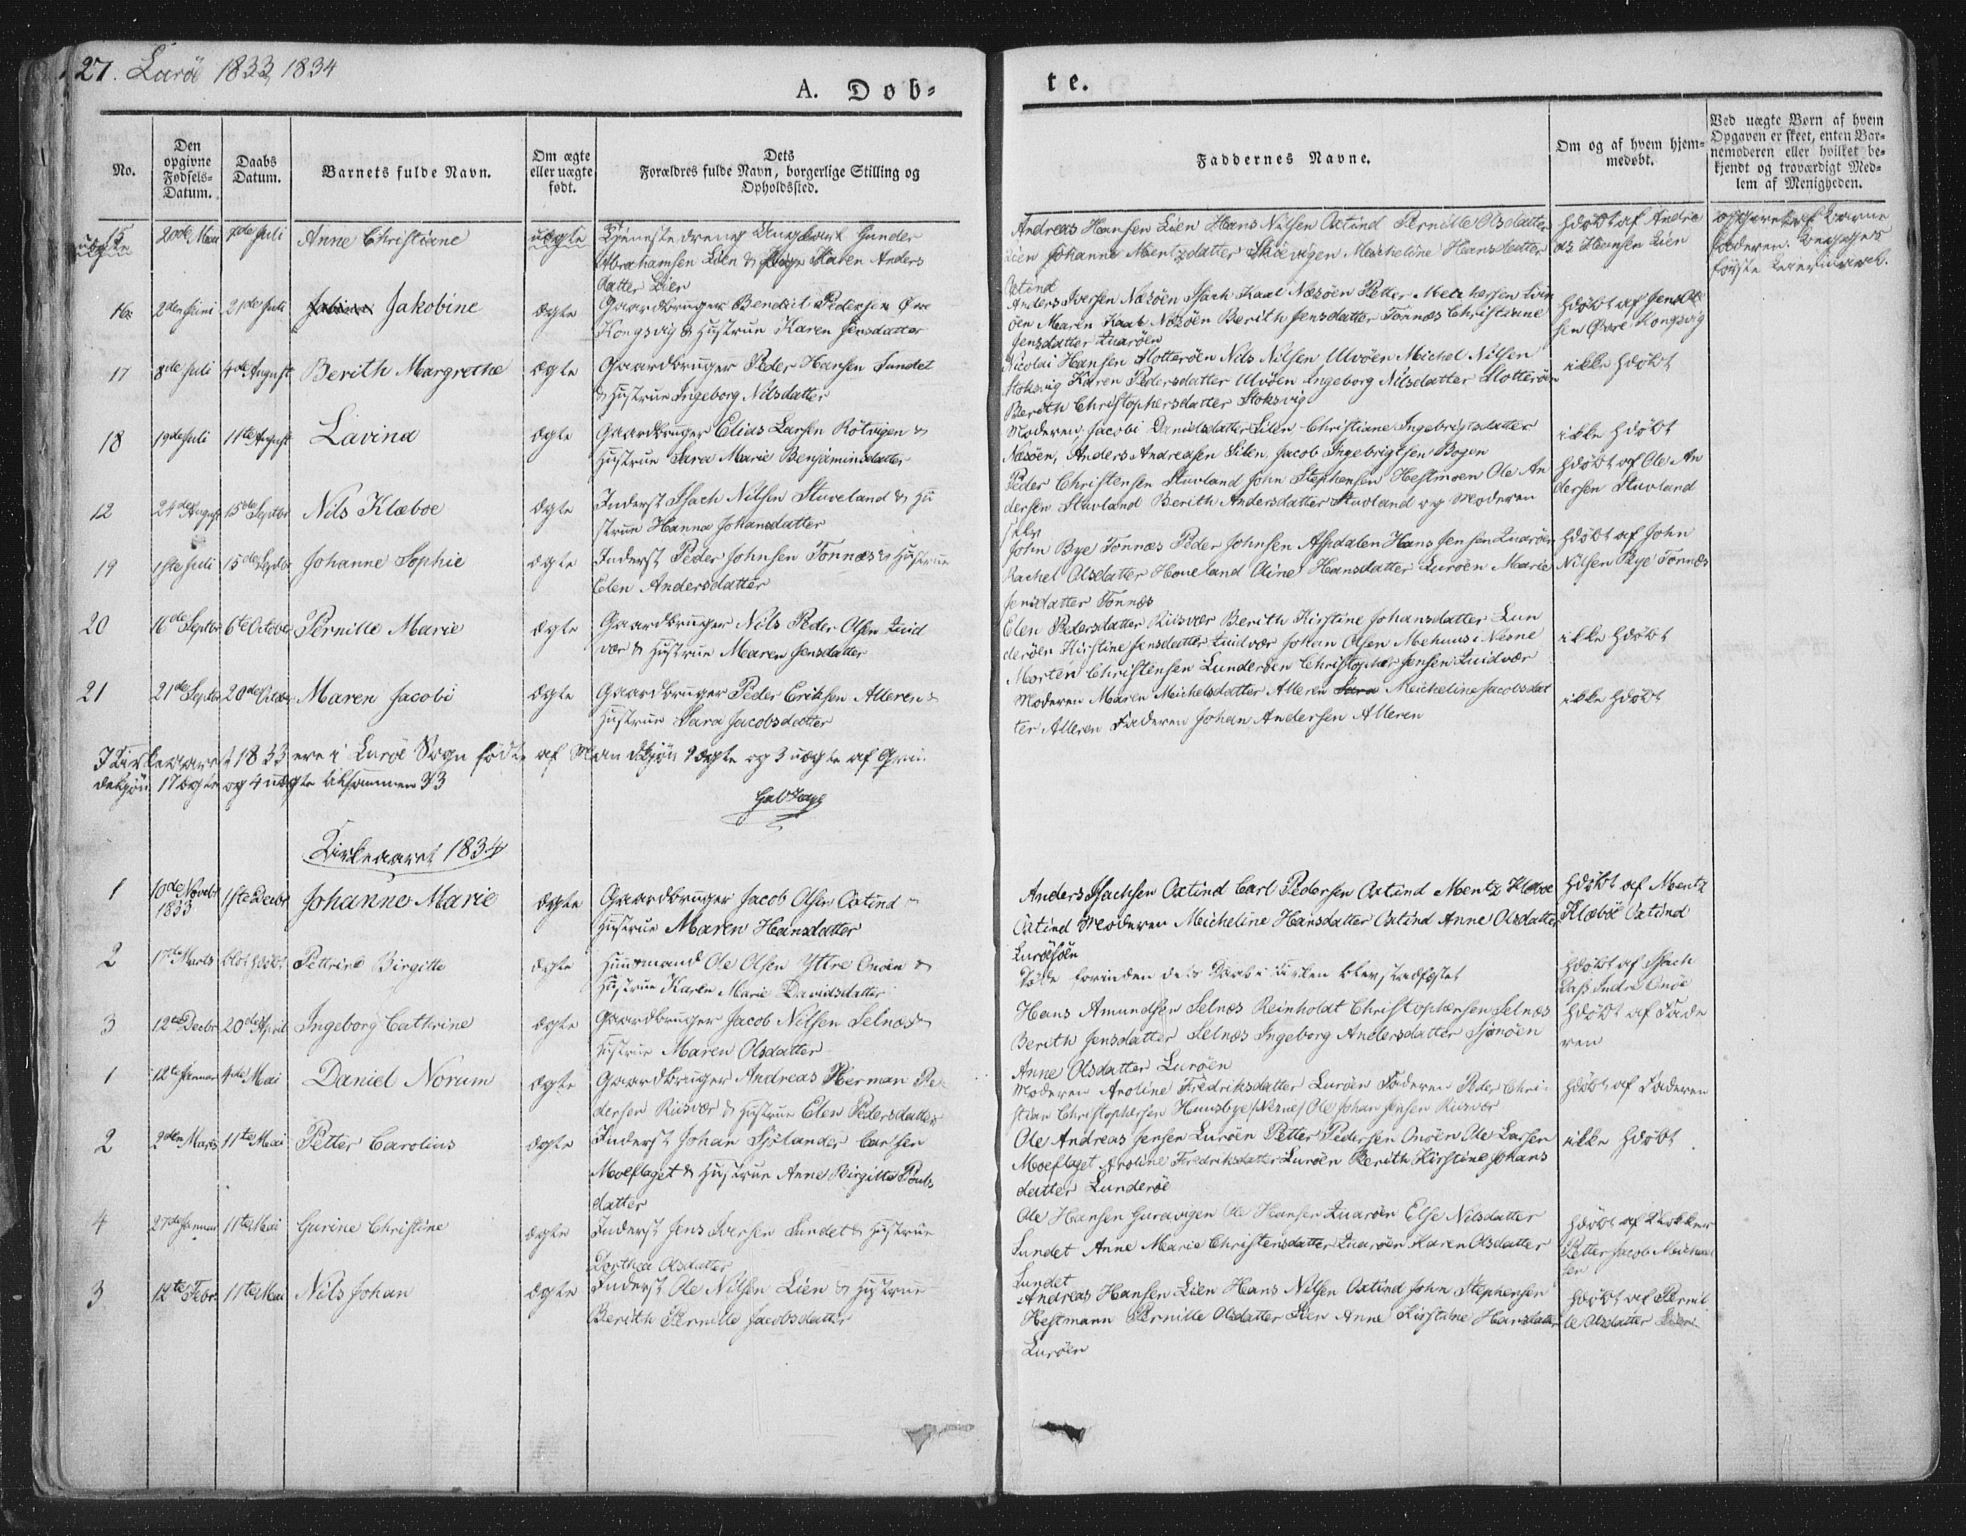 27. Lurøe 1833, 1834
A. Dob=
te.
No.
Den opgivne Fødsels-Datum.
Daabs Datum.
Barnets fulde Navn.
Om ægte eller uægte født.
Dets Forældres fulde Navn, borgerlige Stilling og Opholdssted.
Faddernes Navne.
Om og af hvem hjemmedøbt.
Ved uægte Børn af hvem Opgaven er skeet, enten Barnemoderen eller hvilket bekjendt og troværdigt Medlem af Menigheden.
15 uægte 20de Mai 7de Juli Anne Christiane uægte Tjenestedreng Ungkarl Gunder
Abrahamsen Lien & Pige Karen Anders
datter Lien
Andreas Hansen Lien Hans Nilsen Oxtind Pernille Olsdatter
Lien Johanne Mentzdatter Micheline Hansdatter
Oxtind
Hdøbt af Andre
as Hansen Lien
16 2den Juni 21de Juli Jakobine ægte Gaardbruger Bendict Pedersen Øre
Kongsvig & Hustrue Karen Jensdatter
Anders Iversen Næsøen Isach Kaal Næsøen Petter
øen Maren Kaal Næsøen Berith Jensdatter Tonnæs Christiane
Jensdatter Luarøen
Hdøbt af Jens Ol
sen Øvre Kongsvig
17 8de Juli 4de August Berith Margrethe ægte Gaardbruger Peder Hansen Sundet
& Hustrue Ingeborg Nilsdatter
Nicolai Hansen Flotterøen Nils Nilsen Ulvøen Michel Nilsen
Stoksvig Karen Pedersdatter Ulvøen Ingeborg Nilsdatter Flotterøen
Berith Christophersdatter Stoksvig
ikke Hdøbt
18 19de Juli 11te August Lavina ægte Gaardbruger Elias Larsen Rotvigen &
Hustrue Sara Marie Benjaminsdatter
Moderen, Jacobi Danielsdatter Silen Christiane Ingebrigtsdatter
Næsøen, Anders Andreasen Silen, Jacob Ingebrigtsen Bogen
ikke Hdøbt
12 24de August 15de Septbr Nils Klæboe ægte Inderst Isach Nilsen Stuveland & Hu
strue Hanna Johansdatter
Peder Christensen Stuvland John Stephensen Hestmoen Ole An
dersen Stuvland Berith Andersdatter Stuvland og Moderen
selv
Hdøbt af Ole An
dersen Stuvland
19 1ste Juli 15de Septbr Johanne Sophie ægte Inderst Peder Johnsen Tonnæs & Hustrue
Elen Andersdatter
John Bye Tonnæs Peder Johnsen Aspdalen Hans Jensen Luarøen
Rachel Olsdatter Honeland Oline Hansdatter Lurøen Marie
Jensdatter Tonnæs
Hdøbt af John
Nilsen Bye Tonnæs
20 16de Septbr 6te October Pernille Marie ægte Gaardbruger Nils Peder Olsen Quid
vær & Hustrue Maren Jensdatter
Elen Pedersdatter Riisvær Berith Kirstine Johansdatter Lun
derøen Kirstine Jensdatter Quidvær Johan Olsen Mehuus i Nesne
Morten Christensen Lunderøen Christopher Jensen Quidvær
ikke Hdøbt
21 21de Septbr 20de Octbr Maren Jacobi ægte Gaardbruger Peder Eriksen Alleren &
Hustrue Sara Jacobsdatter
Moderen Maren Michelsdatter Alleren Sara Micheline Jacobsdat
ter Alleren Faderen Johan Andersen Alleren
ikke Hdøbt
I Kirkeaaret 1833 ere i Lurøe Sogn fødte af Mandkjøn 9 ægte og 3 uægte af Qvin
dekjøn 17 ægte og 4 uægte tilsammen 33
Kirkeaaret 1834
1 10de Novbr 1833 1ste Decbr Johanne Marie ægte Gaardbruger Jacob Olsen Oxtind &
Hustrue Maren Hansdatter
Anders Isachsen Oxtind Carl Pedersen Oxtind Mentz Klæboe
Oxtind Moderen Micheline Hansdatter Oxtind Anne Olsdatter
Lurøesøen
Hdøbt af Mentz
Klæboe Oxtind
2 17de Marts blot Hdøbt Pettrine Birgitte ægte Huusmand Ole Olsen Yttre Onøen &
Hustrue Karen Marie Davidsdatter
Døde forinden dets Daab i Kirken blev stadfæstet
Hdøbt af Isach
Indre Onøe
3 12te Decbr 20de April Ingeborg Cathrine ægte Gaardbruger Jacob Nilsen Selnæs &
Hustrue Maren Olsdatter
Hans Amundsen Selnæs Reinholdt Christophersen Selnæs
Berith Jensdatter Selnæs Ingeborg Andersdatter Sjonøen
Anne Olsdatter Lurøen
Hdøbt af Fade
ren
1 12te Januar 4de Mai Daniel Norum ægte Gaardbruger Andreas Herman Pe
dersen Riisvær & Hustrue Elen Pedersdatter
Moderen Aroline Fredriksdatter Lurøen Faderen Peder Chri
stian Christophersen Huusbye (Nesne) Ole Johan Jensen Riisvær
Hdøbt af Faderen
2 2den Marts 11te Mai Petter Carolius ægte Inderst Johan Sjølander Carlsen
Moeflaget & Hustrue Anne Birgitte Pouls
datter
Ole Andreas Jensen Lurøen Petter Pedersen Onøen Ole Larsen
Moeflaget Aroline Fredriksdatter Lurøen Berith Kirstine Johans
datter Lunderøe
ikke Hdøbt
4 27de Januar 11te Mai Gurine Christine ægte Inderst Jens Iversen Sundet & Hustrue
Dorthea Olsdatter
Ole Hansen Guravigen Ole Hansen Luarøen Else Nilsdatter
Sundet Anne Marie Christensdatter Luarøen Karen Olsdatter
Sundet
Hdøbt af Klokker
Petter Jacob Michael
sen
3 12te Febr 11te Mai Nils Johan ægte Inderst Ole Nilsen Lien & Hustrue
Berith Pernille Jacobsdatter
Andreas Hansen Lien Hans Nilsen Oxtind John Stephensen
Hestmann Pernille Olsdatter Lien Anne Kirstine Hansdatter
Lurøen
Hdøbt af Pernil
le Olsdatter Lien